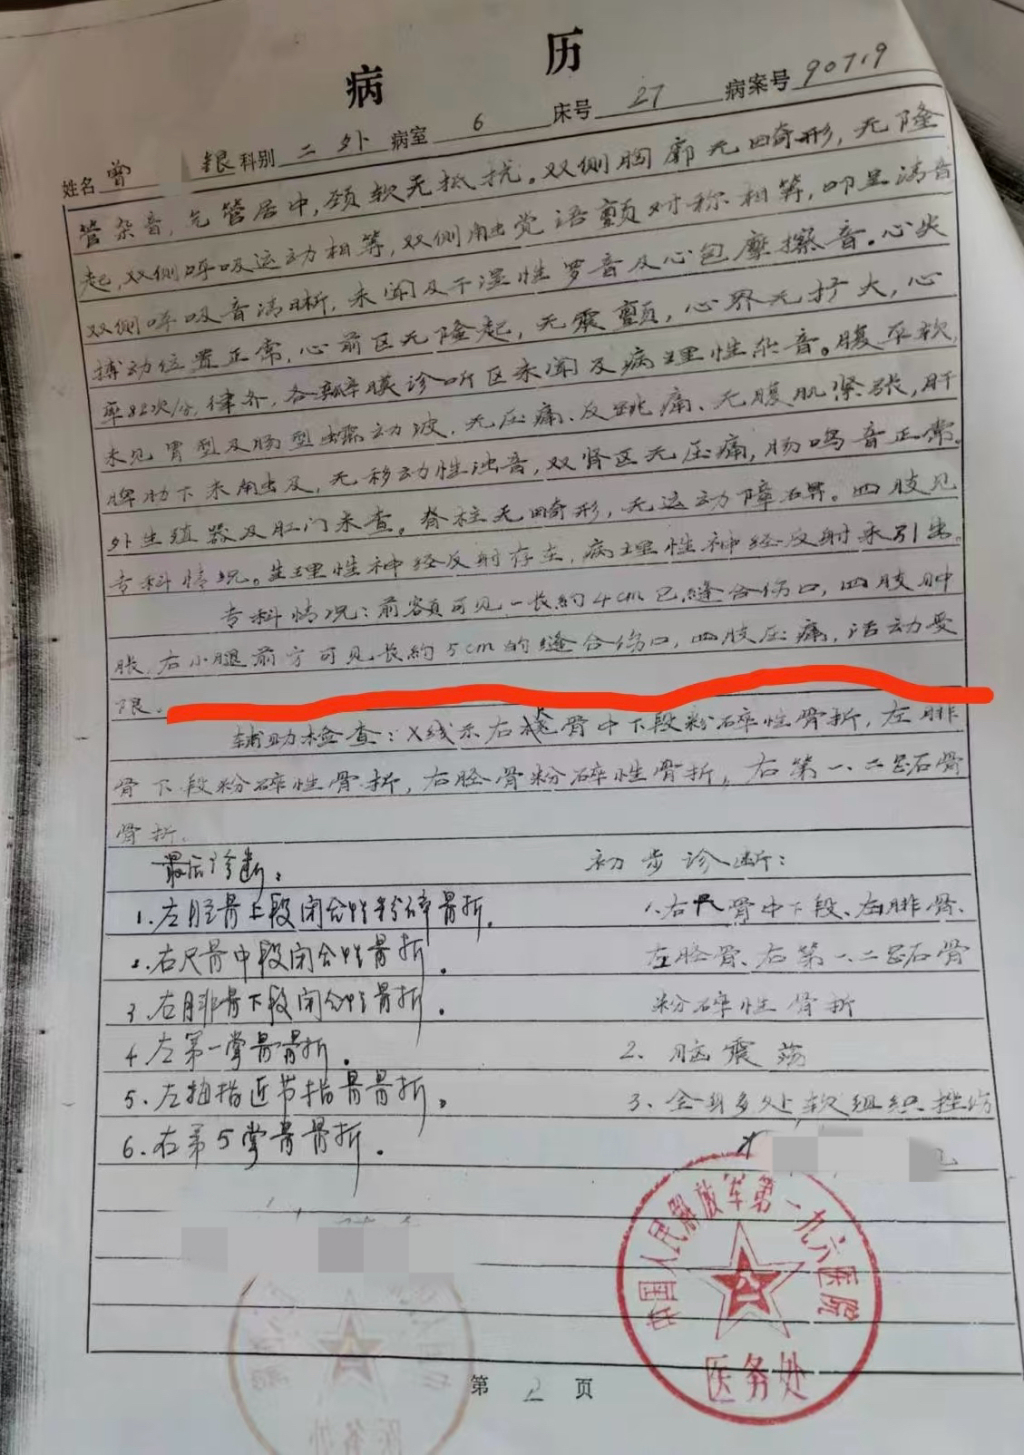 病 历
姓名 曾 银 科别 二外 病室 6 床号 27 病案号 90719
管杂音,气管居中,颈软无抵抗。双侧胸廓无畸形,无隆
起,双侧呼吸运动相等,双侧触觉语颤对称相等,叩呈清音
双侧呼吸音清晰,未闻及干湿性罗音及心包摩擦音。心尖
搏动位置正常,心前区无隆起,无震颤,心界无扩大,心
率82次/分,律齐,各瓣膜诊听区未闻及病理性杂音。腹平软,
未见胃型及肠型蠕动波,无压痛、反跳痛、无腹肌紧张,肝
脾肋下未触及,无移动性浊音,双肾区无压痛,肠鸣音正常。
外生殖器及肛门未查。脊柱无畸形,无运动障碍。四肢见
专科情况。生理性神经反射存在,病理性神经反射未引出。
专科情况:前额可见一长约4cm已缝合伤口,四肢肿
胀,右小腿前方可见长约5cm的缝合伤口,四肢压痛,活动受
限。
辅助检查:X线示右尺骨中下段粉碎性骨折,左腓
骨下段粉碎性骨折,右胫骨粉碎性骨折,右第一、二跖骨
骨折.
最后诊断: 初步诊断:
1.左胫骨上段闭合性粉碎骨折. 1.右尺骨中下段、左腓骨、
2.右尺骨中段闭合性骨折. 左胫骨、右第一、二跖骨
3.右腓骨下段闭合性骨折. 粉碎性骨折
4.左第一掌骨骨折. 2. 脑震荡
5.左拇指近节指骨骨折. 3、全身多处软组织挫伤
6.右第5掌骨骨折.
中国人民解放军第一九六医院
医务处
医务处
第 2 页